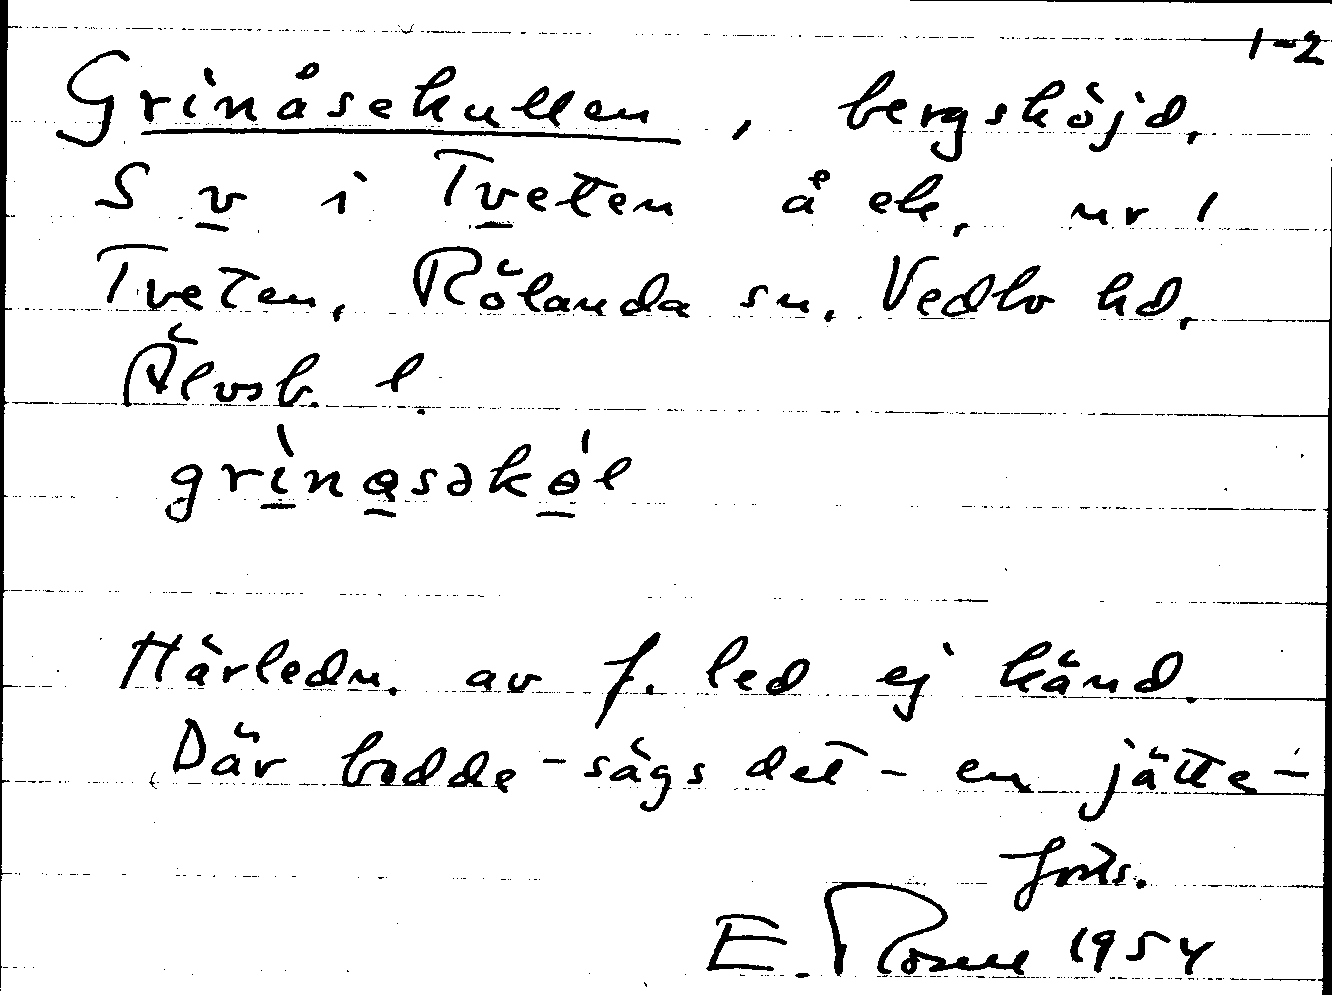 1-2
Grinåsekullen, bergshöjd,
S v i Tveten å ek. nr 1
Tveten, Rölanda sn. Vedbo hd,
Älvsb. l.
grìnåsəkö́l
Härledn. av f. led ej känd.
Där bodde - sägs det - en jätte-
forts.
E. Rosell 1954